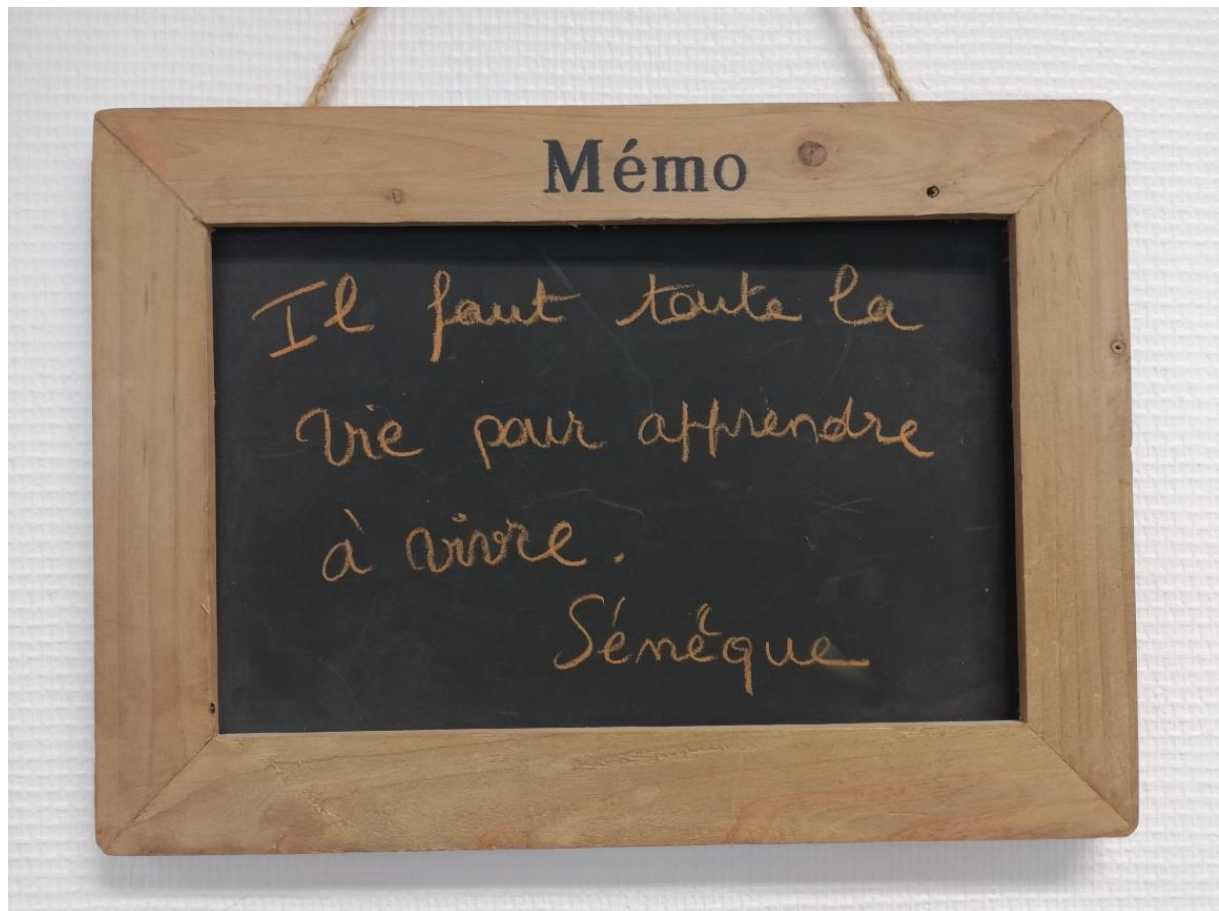 Mémo
Il faut toute la
vie pour apprendre
à vivre.
Sénêque